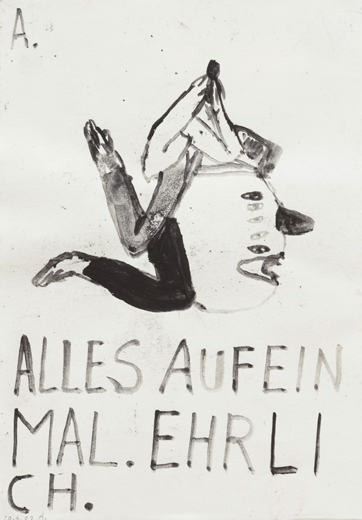 A.
ALLES AUFEIN
MAL. EHRLI
CH.